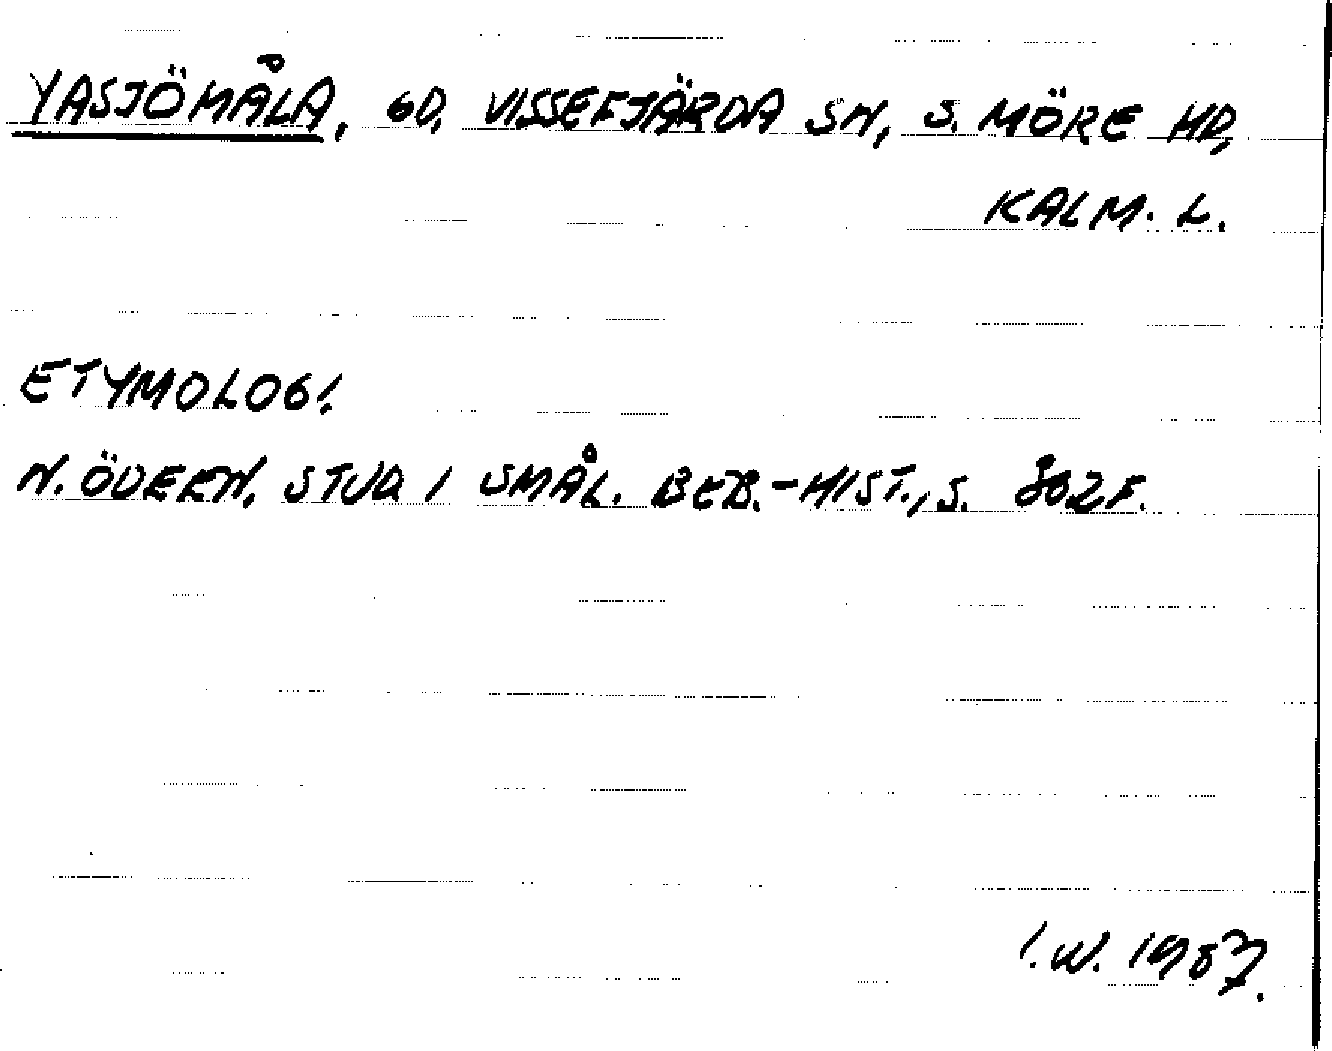 YASJÖMÅLA, GD, VISSEFJÄRDA SN, S. MÖRE HD,
KALM. L.
ETYMOLOGI.
N. ÖDEEN, STUD I SMÅL. BEB.-HIST., S. 302F.
I.W. 1987.